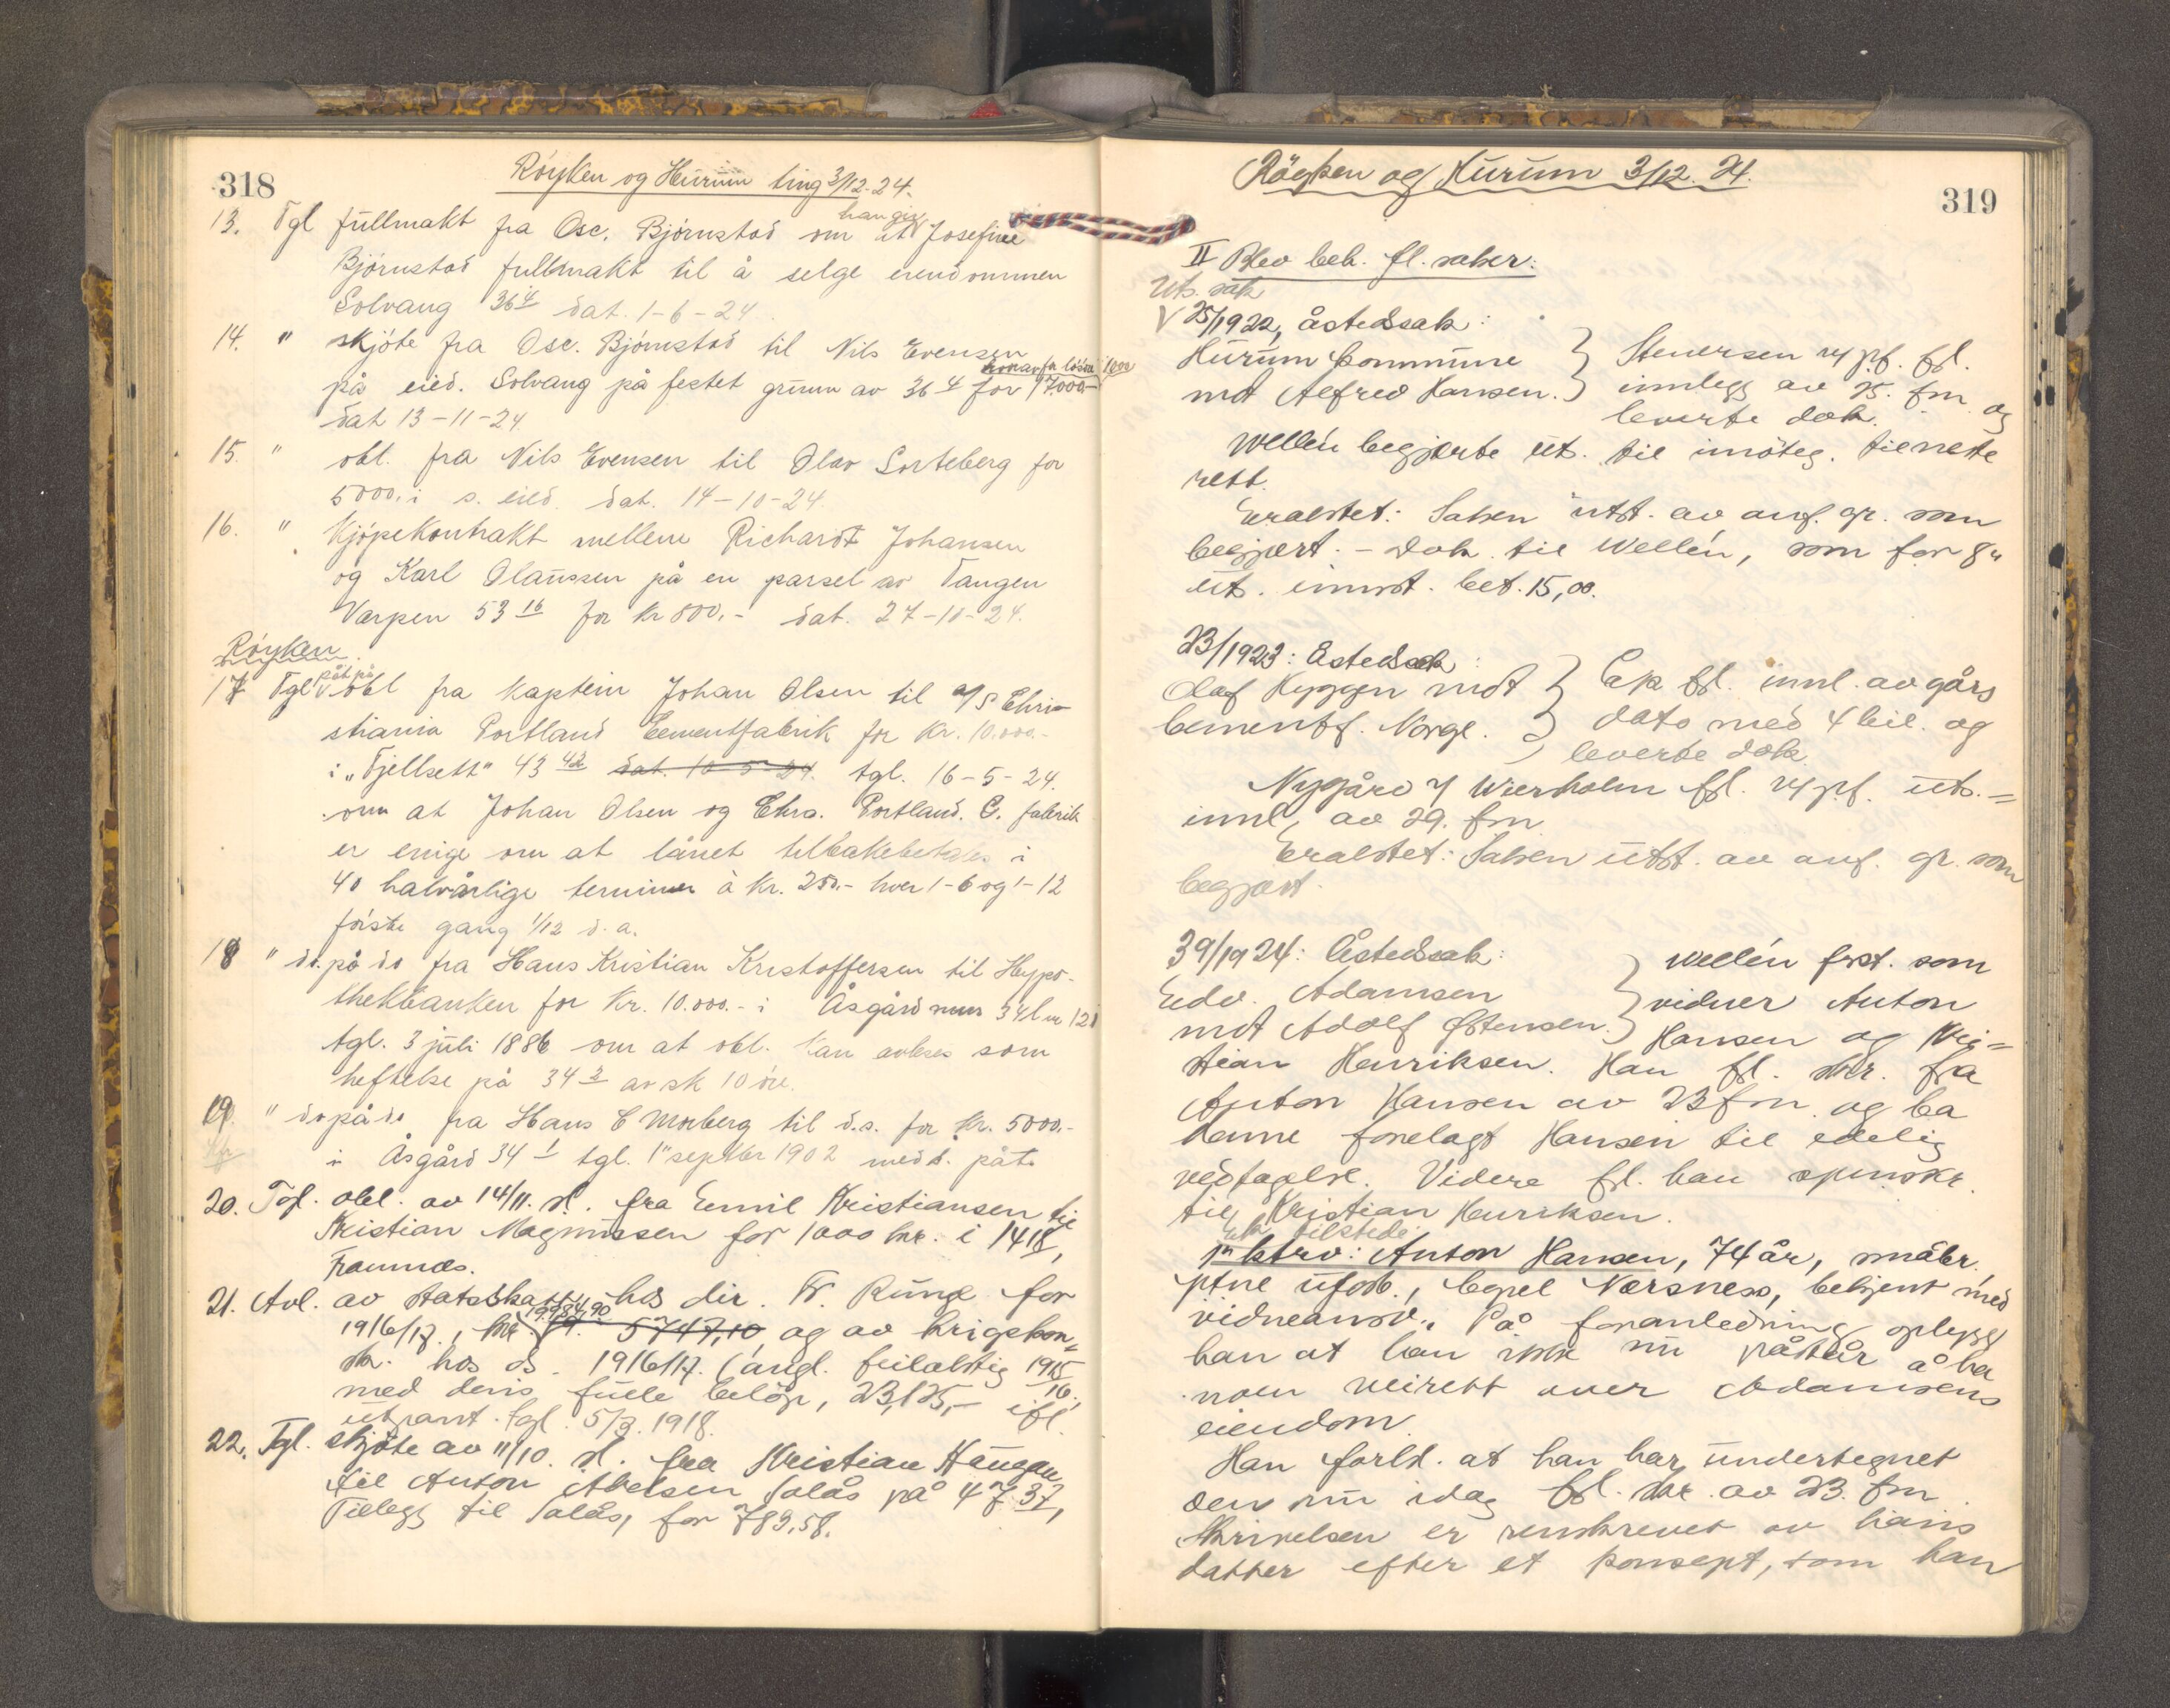 318
Röyken og Hurum ting 3/12-24.
13. Tgl fullmakt fra Osc. Björnstad om at han gir Josefine
Björnstad fullmakt til å selge eiendommen
Solvang 36 4 dat. 1-6-24
14. " skjöte fra Osc. Björnstad til Nils Evensen
på eied. Solvang på festet grunn av 36 4 for 17.000.- hvorav for lösöre 1000
dat 13-11-24.
15. " obl. fra Nils Evensen til Olav Sorteberg for
5000. i s. eied. dat. 14-10-24.
16. " Kjöpekontrakt mellem Richardt Johansen
og Karl Olaussen på en parsel av Tangen
Varpen 53 16 for kr 800.- dat. 27-10-24.
Röyken
17 Tgl påt på obl fra Kaptein Johan Olsen til A/S Chri-
stiania Portland Cementfabrik for Kr. 10.000.-
i "Fjellsett" 43 42 dat. 10-5-24. tgl. 16-5-24.
om at Johan Olsen og Chra. Portland. C. fabrik
er enige om at lånet tilbakebetales i
40 halvårlige terminer à Kr. 250.- hver 1-6 og 1-12
förste gang 1/12 d. a.
18 " do. på do fra Hans Kristian Kristoffersen til Hypo-
thekbanken for Kr. 10.000.- i Åsgård
tgl. 3 juli 1886 om at obl. kan avleses som
heftelse på 34 2 av sk 10 öre.
19. " do på do fra Hans C Morberg til d.s. for Kr. 5000.-
i Åsgård 34 1 tgl. 1" septbr 1902 med s. påt.
20. Tgl. obl. av 14/11. d. fra Emil Kristiansen til
Kristian Magnussen for 1000 kr. i 14 18,
Framnæs.
21. Avl. av statsskatt hos dir. Fr. Runge for
1916/17, kr. 19984,90 5747,10, og av krigskon-
sk. hos ds. 1916/17. (angl. feilaktig 1915/16,
med dens fulle belöp, 23,125,- ifl.
utpant. tgl. 5/3. 1918.
22. Tgl. skjöte av 11/10. d. fra Kristian Haugen
til Anton Abelsen Solås på 47 37,
Tillegg til Solås, for 789,58.
Röyken og Hurum 3/12. 24.
319
II Blev beh. fl. saker:
Uts. sak
V 25/1922, åstedsak:
Hurum kommune } Steuersen
mot Alfred Hansen. } innlegg av 25. fm og
leverte dok.
Wellén begjærte uts. til imöteg. til neste
rett.
Eralstet: Saken utst. av anf. gr. som
begjært. - Dok. til Wellén, som for 8"
uts. innst. bet. 15,00.
23/1923: Åstedsak:
Olaf Hyggen mot } Ek fl. innl. av gårs
Cementf. Norge. } dato med 4 bil. og
leverte dok.
Nygård v/ Wierholm fl. uts.=
innl, av 29. fm
Eralstet: Saken utst. av anf. gr. som
begjært.
39/1924: Åstedsak:
Edv. Adamsen } Wellén frst. som
mot Adolf Östensen. } vidner Anton
Hansen og Kri=
stian Henriksen. Han fl. skr. fra
Anton Hansen av 23 fm. og ba
denne forelagt Hansen til edelig
vedtagelse. Videre fl. han spmskr.
til Kristian Henriksen.
Ek tilstede
1" ktrv: Anton Hansen, 74 år, småbr.
ptne ufosb., Copel Nærsness, bekjent med
vidneansv.. På foranledning oplyser
han at han ikke nu påstår å ha
noen veirett over Adamsens
eiendom.
Han forkl. at han har undertegnet
den nu idag fl. skr. av 23. fm.
Skrivelsen er renskrevet av hans
datter efter et konsept, som han